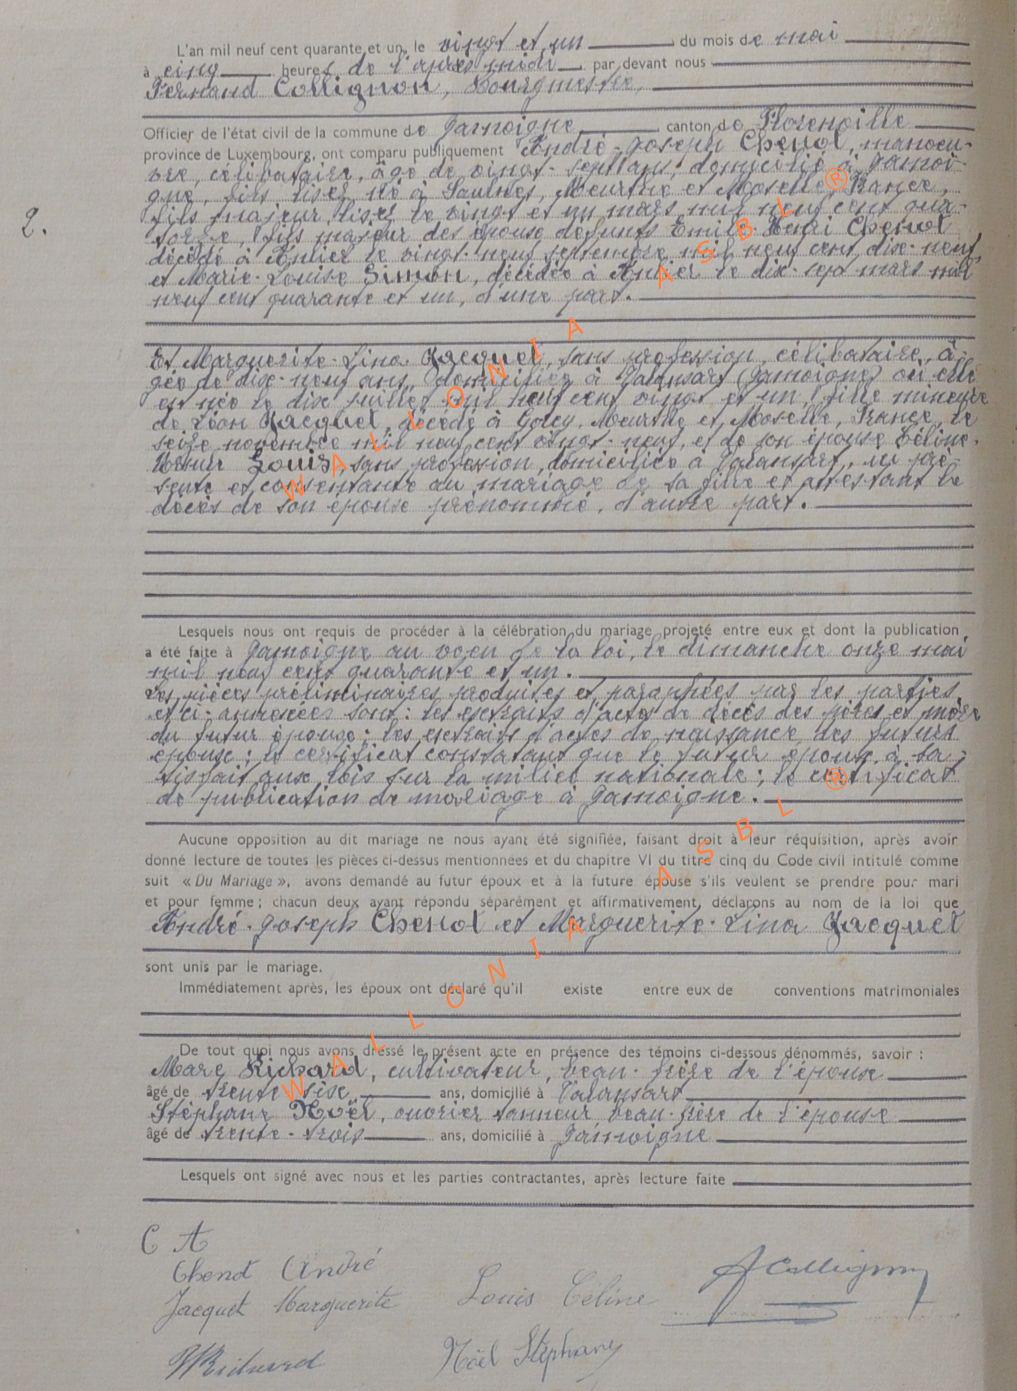 L'an mil neuf cent quarante et un, le vingt et un du mois de mai
à cinq heures de l'après midi par devant nous
Fernand Collignon, Bourgmestre,
Officier de l'état civil de la commune de Jamoigne canton de Florenville
province de Luxembourg, ont comparu publiquement André-Joseph Chenot, manoeu-
vre, célibataire, âgé de vingt-sept ans, domicilié à Jamoi-
gne, né à Saulnes, Meurthe et Moselle, France,
le vingt et un mars mil neuf cent qua-
torze, fils majeur des époux défunts Emile-Henri Chenot
décédé à Anlier le vingt-neuf septembre mil neuf cent dix-neuf,
et Marie-Louise Simon, décédée à Anlier le dix-sept mars mil
neuf cent quarante et un, d'une part.
2.
Et Marguerite-Lina Jacquet, sans profession, célibataire, â-
gée de dix-neuf ans, domiciliée à Valansart (Jamoigne) où elle
est née le dix juillet mil neuf cent vingt et un, fille mineure
de Léon Jacquet, décédé à Gorcy, Meurthe et Moselle, France, le
seize novembre mil neuf cent vingt-neuf, et de son épouse Céline-
Louis, sans profession, domiciliée à Valansart, ici pré-
sente et consentante au mariage de sa fille et attestant le
décès de son époux prénommé, d'autre part.
Lesquels nous ont requis de procéder à la célébration du mariage projeté entre eux et dont la publication
a été faite à Jamoigne au voeu de la loi, le dimanche onze mai
mil neuf cent quarante et un.
Les pièces préliminaires produites et paraphées par les parties
et ci-annexées sont: les extraits d'actes de décès des pères et mère
du futur époux; les extraits d'actes de naissance des futurs
époux; le certificat constatant que le futur époux a sa-
tisfait aux lois sur la milice nationale; le certificat
de publication de mariage à Jamoigne.
Aucune opposition au dit mariage ne nous ayant été signifiée, faisant droit à leur réquisition, après avoir
donné lecture de toutes les pièces ci-dessus mentionnées et du chapitre VI du titre cinq du Code civil intitulé comme
suit « Du Mariage », avons demandé au futur époux et à la future épouse s'ils veulent se prendre pour mari
et pour femme ; chacun deux ayant répondu séparément et affirmativement, déclarons au nom de la loi que
André-Joseph Chenot et Marguerite-Lina Jacquet
sont unis par le mariage.
Immédiatement après, les époux ont déclaré qu'il existe entre eux de conventions matrimoniales
De tout quoi nous avons dressé le présent acte en présence des témoins ci-dessous dénommés, savoir :
Marc Richard, cultivateur, beau-frère de l'épouse
âgé de trente-six ans, domicilié à Valansart
Stéphane Noël, ouvrier tanneur beau-frère de l'épouse
âgé de trente-trois ans, domicilié à Jamoigne
Lesquels ont signé avec nous et les parties contractantes, après lecture faite
C A
Chenot André
Jacquet Marguerite
Louis Céline
FCollignon
MRichard
Noël Stéphane
WALLONIA ASBL ®
WALLONIA ASBL ®